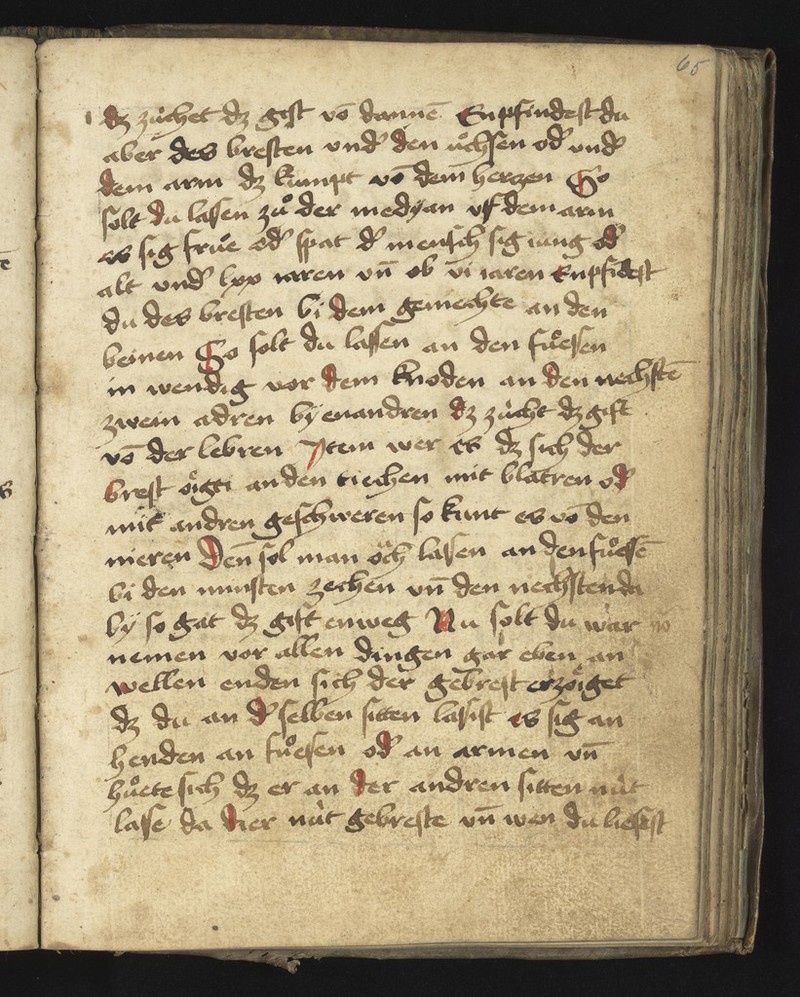 65
dz zúchet dz gift vō dannē Enpfindest du
aber des bresten undʼ den uͦchsen odʼ undʼ
dem arm dz kumpt vō dem herczen So
solt du lassen zuͦ der medyan uff dem arm
es sig fruͤe odʼ spat dʼ mensch sig iung odʼ
alt undʼ lxx iaren uñ ob vi iaren Enpfidest
du des bresten bi dem gemechte an den
beinen So solt du lassen an den fuͦessen
in wendig vor dem knoden an den nechstē
zwein adren by enandren dz zúcht dz gift
vō der lebren Item wer es dz sich der
brest oͤigti an den tiechen mit blatren odʼ
mit andren geschweren so kunt es vō den
nieren Den sol man och lassen an den fuͦessē
bi den minsten zechen uñ den nechsten da
by so gat dz gift enweg Nu solt du war
nemen vor allen dingen gar eben an
wellen enden sich der gebrest erzoͤiget
dz du an dʼ selben sitten lassist es sig an
henden an fuͦessen odʼ an armen uñ
huͦete sich dz er an der andren sitten nút
lasse da dier nút gebreste uñ wen du liessest